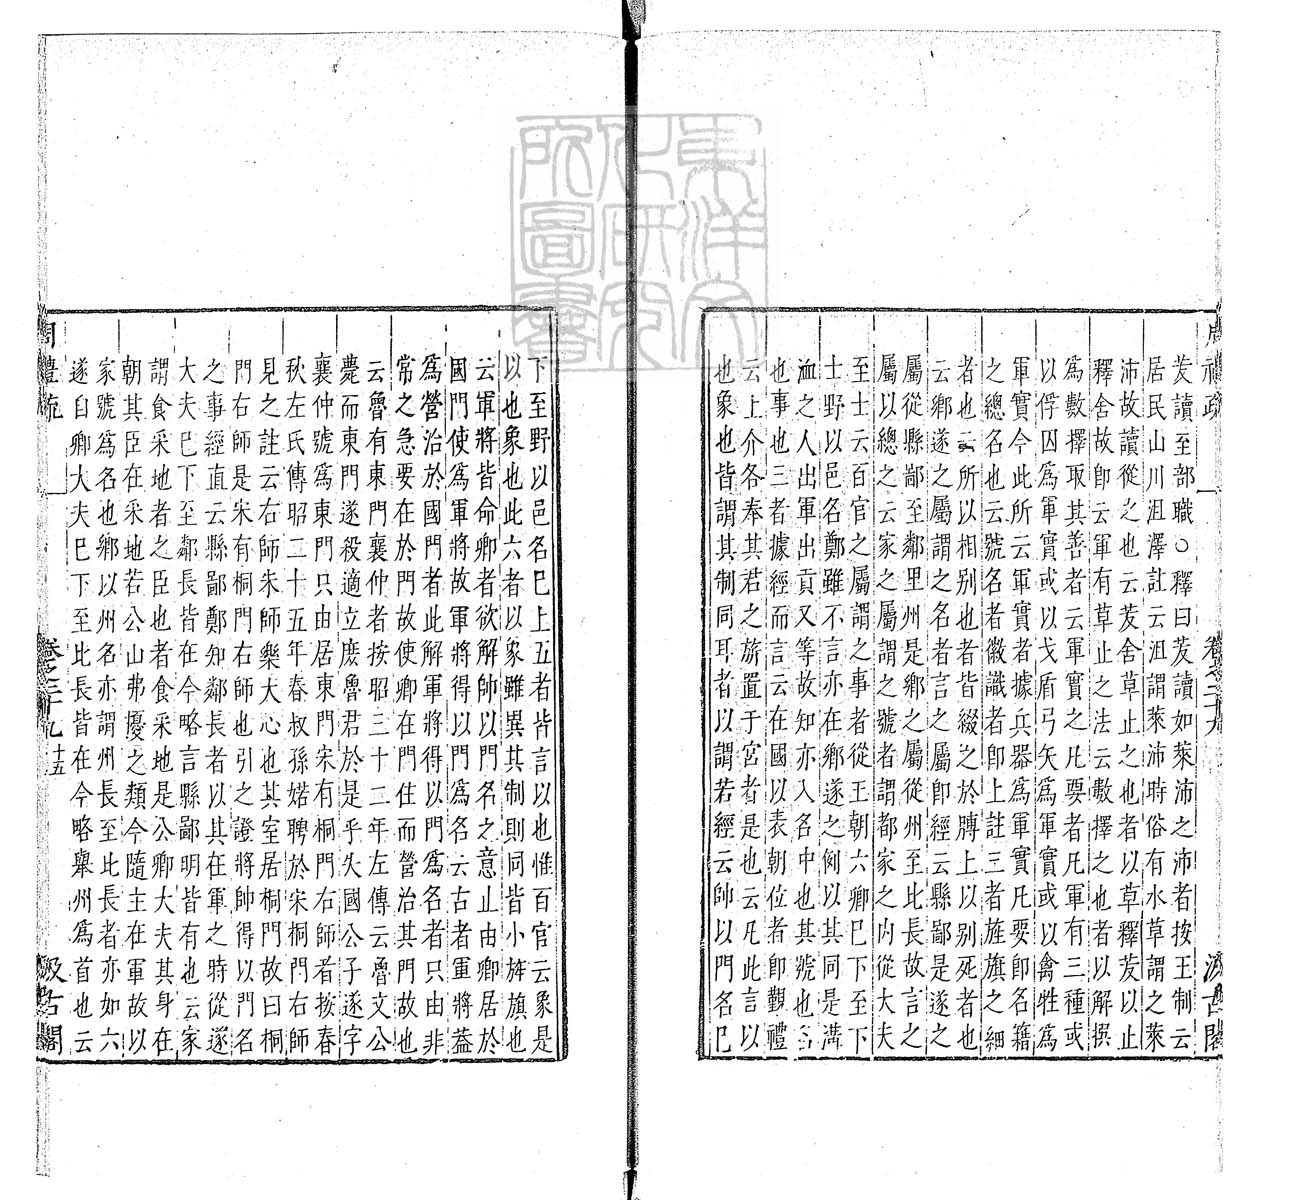 周禮疏 卷之二十九 汲古閣
茇讀至部職○釋曰茇讀如萊沛之沛者按王制云
居民山川沮澤註云沮謂萊沛時俗有水草謂之萊
沛故讀從之也云茇舍草止之也者以草釋茇以止
釋舍故卽云軍有草止之法云數擇之也者以解撰
爲數擇取其善者云軍實之凡要者凡軍有三種或
以俘囚爲軍實或以戈盾弓矢爲軍實或以禽牲爲
軍實今此所云軍實者據兵器爲軍實凡要卽名籍
之總名也云號名者徽識者卽上註三者旌旗之細
者也云所以相别也者皆綴之於膊上以别死者也
云鄉遂之屬謂之名者言之屬卽經云縣鄙是遂之
屬從縣鄙至鄰里州是鄉之屬從州至比長故言之
屬以總之云家之屬謂之號者謂都家之内從大夫
至士云百官之屬謂之事者從王朝六卿巳下至下
士野以邑名鄭雖不言亦在鄉遂之例以其同是溝
洫之人出軍出貢又等故知亦入名中也其號也
也事也三者據經而言云在國以表朝位者卽觀禮
云上介各奉其君之旂置于宮者是也云凡此言以
也象也皆謂其制同耳者以謂若經云帥以門名巳
下至野以邑名巳上五者皆言以也惟百官云象是
以也象也此六者以象雖異其制則同皆小旌旗也
云軍將皆命卿者欲解帥以門名之意止由卿居於
國門使爲軍將故軍將得以門爲名云古者軍將蓋
爲營治於國門者此解軍將得以門爲名者只由非
常之急要在於門故使卿在門住而營治其門故也
云魯有東門襄仲者按昭三十二年左傳云魯文公
薨而東門遂殺適立庶魯君於是乎失國公子遂字
襄仲號爲東門只由居東門宋有桐門右師者按春
秋左氏傳昭二十五年春叔孫婼聘於宋桐門右師
見之註云右師朱師樂大心也其室居桐門故曰桐
門右師是宋有桐門右師也引之證將帥得以門名
之事經直云縣鄙鄭知鄰長者以其在軍之時從遂
大夫巳下至鄰長皆在今略言縣鄙明皆有也云家
謂食采地者之臣也者食采地是公卿大夫其身在
朝其臣在采地若公山弗擾之類今隨主在軍故以
家號爲名也鄉以州名亦謂州長至比長者亦如六
遂自鄉大夫巳下至比長皆在今略舉州爲首也云
周禮疏 卷之二十九 十五 汲古閣
東洋文化研究所圖書